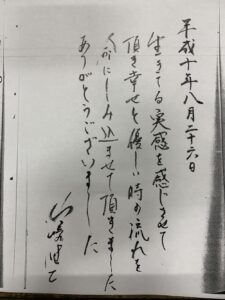 平成十年八月二十六日
生きてる実感を感じさせて
頂き幸せと優しい時の流れを
心にしみ込ませて頂きました
ありがとうございました
山崎